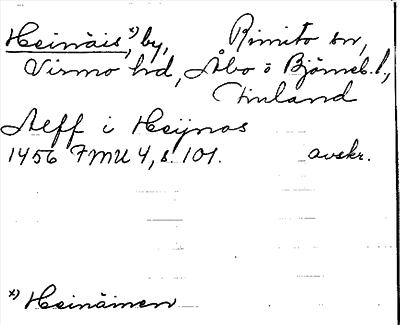 Heinäis,ˣ⁾ by, Rimito sn,
Virmo hd, Åbo o Björneb. l.,
Finland
Aleff i Heijnos
1456 FMU 4, s. 101. avskr.
x) Heinäinen